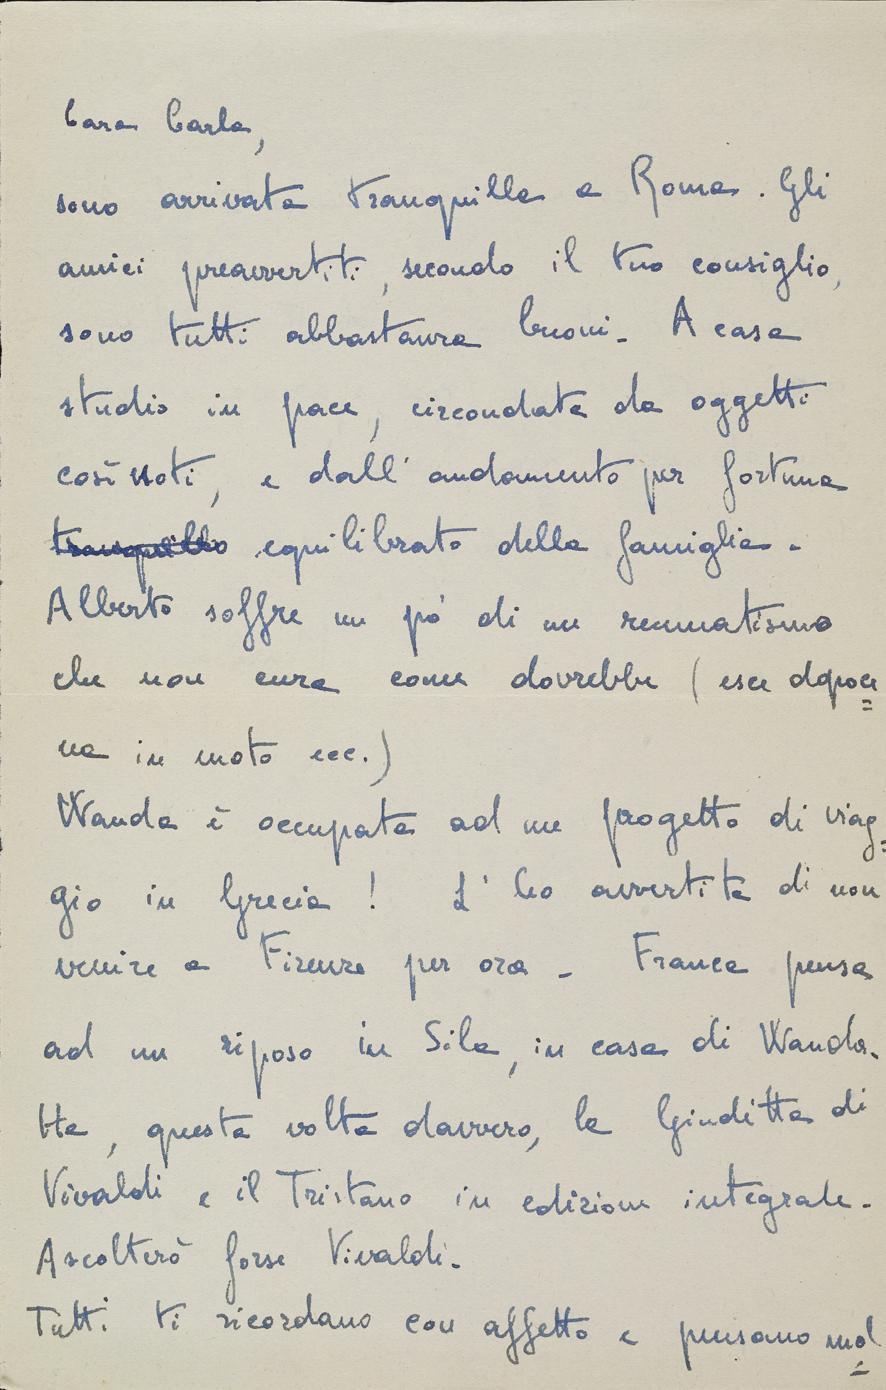 Cara Carla,
sono arrivata tranquilla a Roma. Gli
amici preavvertiti, secondo il tuo consiglio,
sono tutti abbastanza buoni. A casa
studio in pace, circondata da oggetti
così noti, e dall' andamento per fortuna
tranquillo equilibrato della famiglia.
Alberto soffre un pò di un reumatismo
che non cura come dovrebbe (esce dopoce
na in moto ecc.)
Wanda è occupata ad un progetto di viag=
gio in Grecia! L' ho avvertita di non
venire a Firenze per ora - Franca pensa
ad un riposo in Sila, in casa di Wanda.
Ha, questa volta davvero, la Giuditta di
Vivaldi e il Tristano in edizione integrale.
Ascolterò forse Vivaldi.
Tutti ti ricordano con affetto e pensano mol